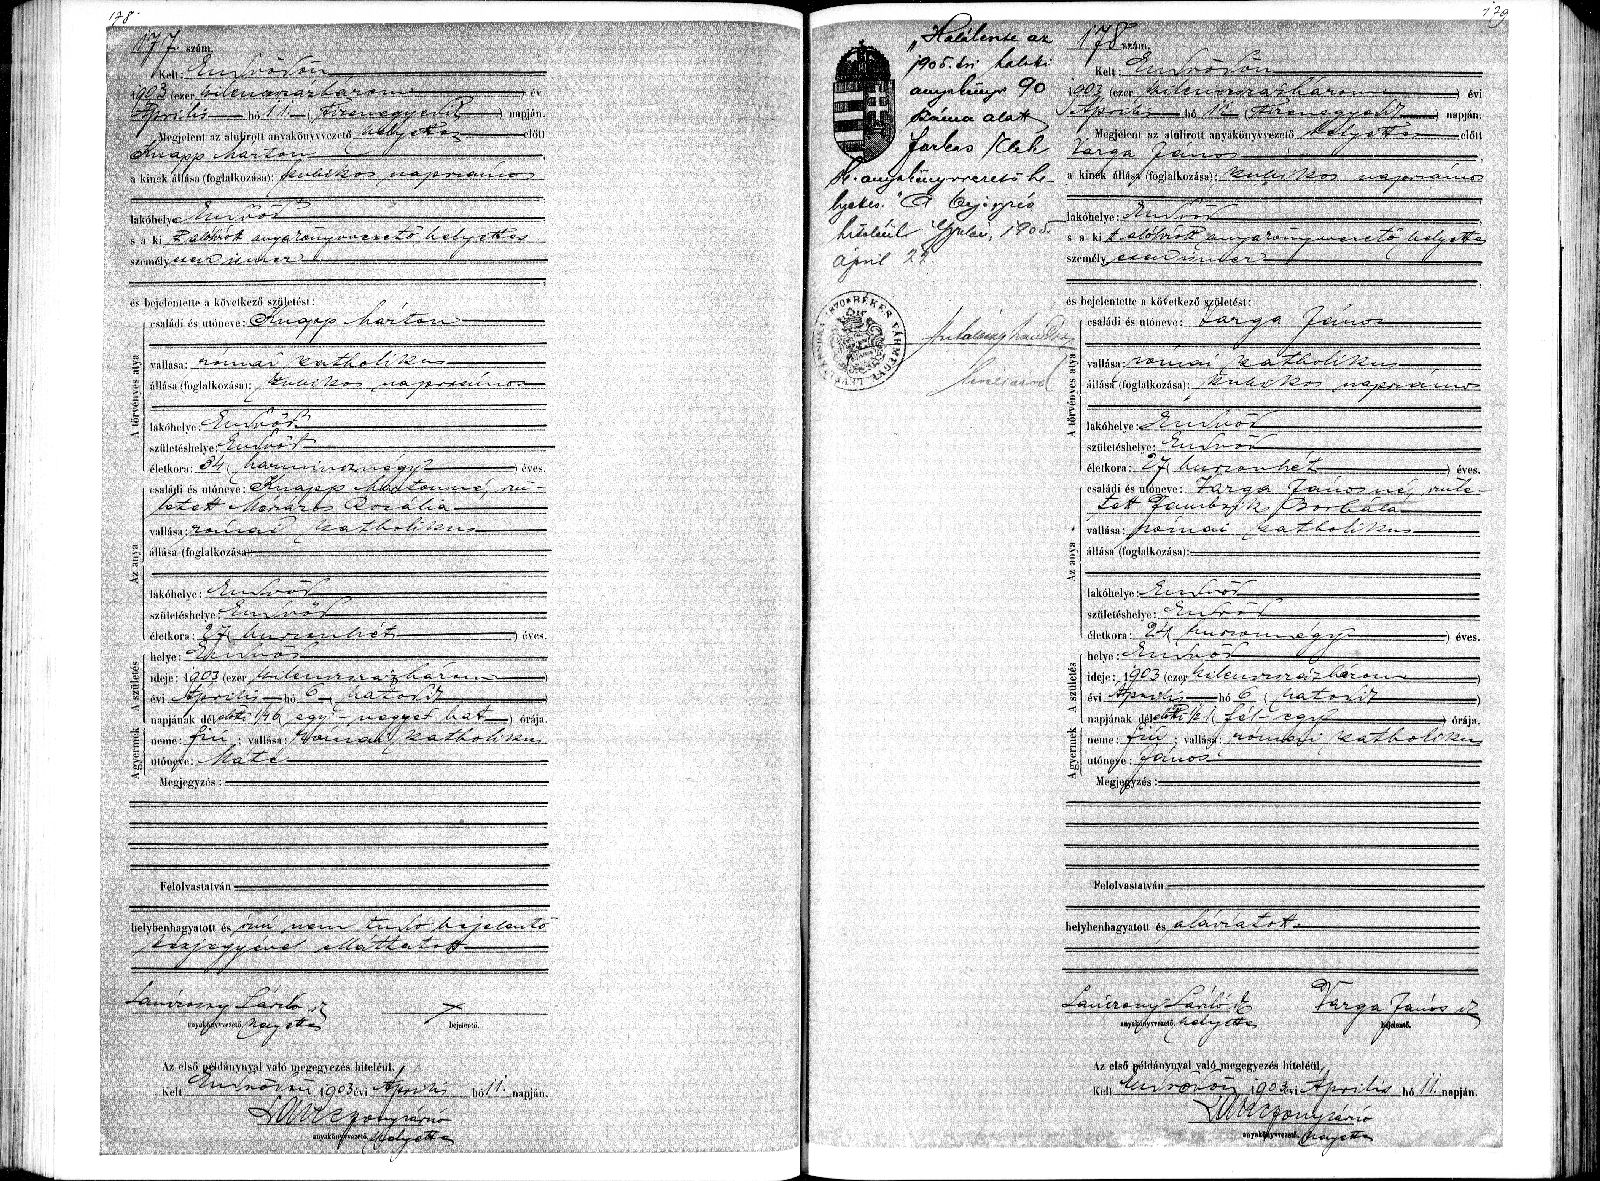 178
177 szám.
Kelt: Endrődön
1903 (ezer kilenczszázhárom) év
Április hó 11 (tizenegyedik) napján.
Megjelent az alulirott anyakönyvvezető helyettes előtt
Knapp Márton
a kinek állása (foglalkozása): kubikos napszámos
lakóhelye Endrőd
s a ki t alólirott anyakönyvvezető helyettes
személyesen ismer
és bejelentette a következő születést:
A törvényes atya
családi és utóneve: Knapp Márton
vallása: római katholikus
állása (foglalkozása): kubikos napszámos
lakóhelye: Endrőd
születéshelye: Endrőd
életkora: 34 (harmincznégy) éves.
Az anya
családi és utóneve: Knapp Mártonné, szü-
letett Rozália
vallása: római katholikus
állása (foglalkozása):
lakóhelye: Endrőd
születéshelye: Endrőd
életkora: 27 (huszonhét) éves.
A születés
helye: Endrőd
ideje: 1903 (ezer kilenczszázhárom)
évi Április hó 6 (hatodik)
napjának délelőtti 1/4 6 (egy-negyed hat) órája.
A gyermek
neme: fiu; vallása: római katholikus
utóneve: Máté
Megjegyzés:
Felolvastatván
helybenhagyatott és irni nem tudó bejelentő
kézjegyével elláttatott
László
anyakönyvvezető. helyettes
x
bejelentő.
Az első példánynyal való megegyezés hiteléül.
Kelt Endrődön 1903 évi Április hó 11. napján.
anyakönyvvezető. helyettes
179
„Halálesete az
1905. évi haloti
anyakönyv 90
száma alatt
Farkas
h. anyakönyvvezető he-
lyettes." A
hiteléül Gyulai, 1905
ápril 22.
BÉKÉS VÁRMEGYE LEVÉLTÁRA
178 szám.
Kelt: Endrődön
1903 (ezer kilenczszázhárom) évi
Április hó 11 (tizenegyedik) napján.
Megjelent az alulirott anyakönyvvezető helyettes előtt
Varga János
a kinek állása (foglalkozása): kubikos napszámos
lakóhelye: Endrőd
s a ki t alólirott anyakönyvvezető helyettes
személyesen ismer
és bejelentette a következő születést:
A törvényes atya
családi és utóneve: Varga János
vallása: római katholikus
állása (foglalkozása): kubikos napszámos
lakóhelye: Endrőd
születéshelye: Endrőd
életkora: 27 (huszonhét) éves.
Az anya
családi és utóneve: Varga Jánosné, szüle-
tett Borbála
vallása: római katholikus
állása (foglalkozása):
lakóhelye: Endrőd
születéshelye: Endrőd
életkora: 24 (huszonnégy) éves.
A születés
helye: Endrőd
ideje: 1903 (ezer kilenczszázhárom)
évi Április hó 6 (hatodik)
napjának délelőtti 1/2 1 (fél-egy) órája.
A gyermek
neme: fiu; vallása: római katholikus
utóneve: János
Megjegyzés:
Felolvastatván
helybenhagyatott és aláiratott.
László
anyakönyvvezető. helyettes
Varga János
bejelentő.
Az első példánynyal való megegyezés hiteléül.
Kelt Endrődön 1903 évi Április hó 11. napján.
anyakönyvvezető. helyettes